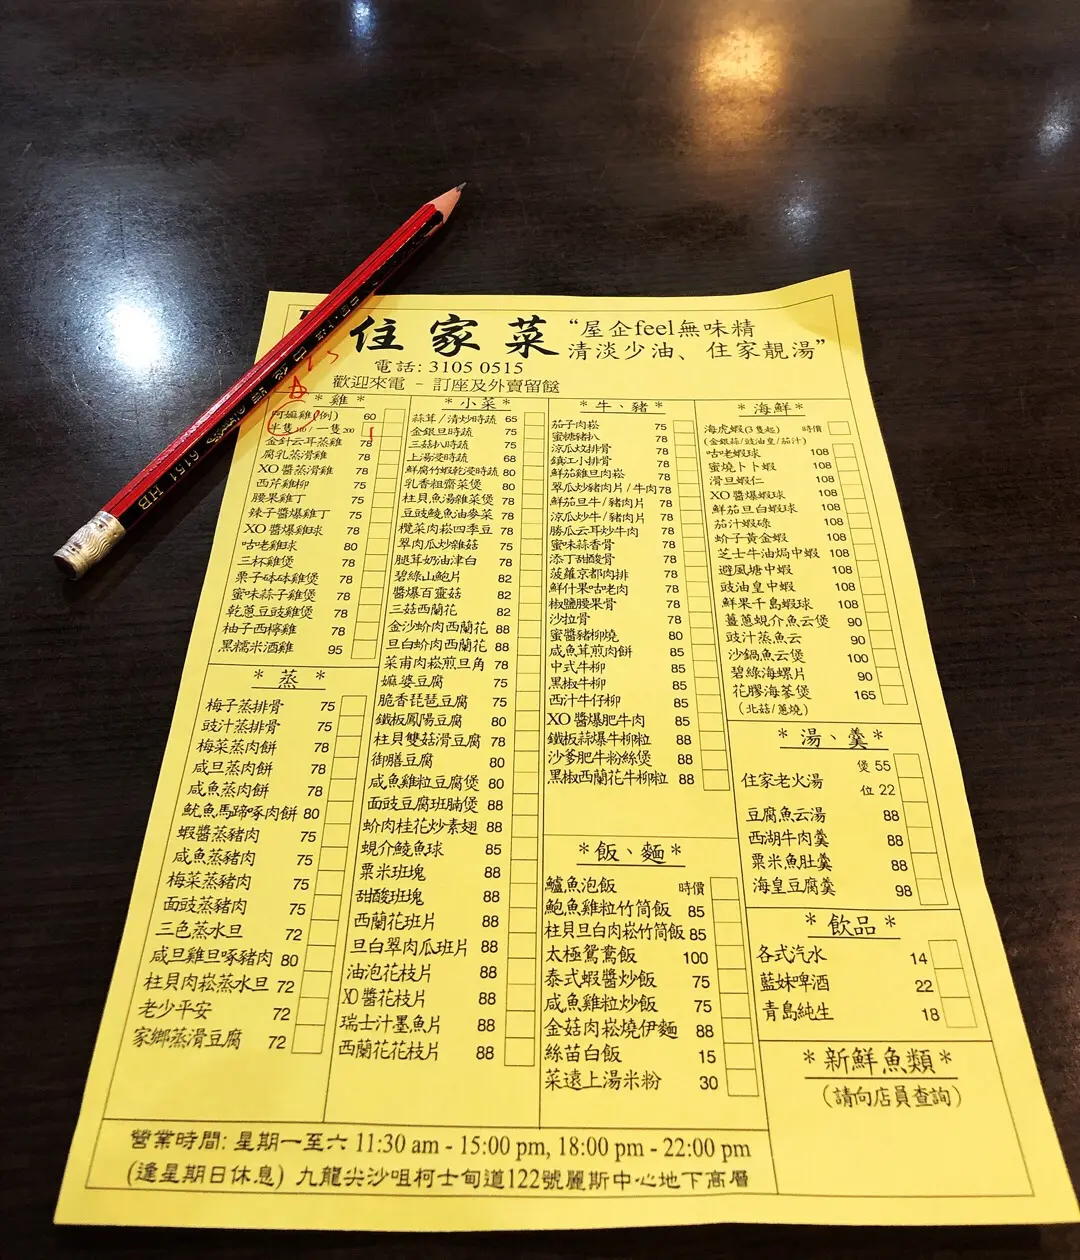 住家菜
“屋企feel無味精
清淡少油、住家靚湯”
電話: 3105 0515
歡迎來電 - 訂座及外賣留餸
* 雞 *
阿嫲雞(例) 60
半隻110/一隻200
金針云耳蒸雞 78
腐乳蒸滑雞 78
XO醬蒸滑雞 78
西芹雞柳 75
腰果雞丁 75
辣子醬爆雞丁 75
XO醬爆雞球 78
咕老雞球 80
三杯雞煲 78
栗子砵砵雞煲 78
蜜味蒜子雞煲 78
乾蔥豆豉雞煲 78
柚子西檸雞 78
黑糯米酒雞 95
* 蒸 *
梅子蒸排骨 75
豉汁蒸排骨 75
梅菜蒸肉餅 78
咸旦蒸肉餅 78
咸魚蒸肉餅 78
魷魚馬蹄啄肉餅 80
蝦醬蒸豬肉 75
咸魚蒸豬肉 75
梅菜蒸豬肉 75
面豉蒸豬肉 75
三色蒸水旦 72
咸旦雞旦啄豬肉 80
柱貝肉崧蒸水旦 72
老少平安 72
家鄉蒸滑豆腐 72
* 小菜 *
蒜茸/清炒時蔬 65
金銀旦時蔬 75
三菇扒時蔬 75
上湯浸時蔬 68
鮮腐竹蝦乾浸時蔬 80
乳香粗齋菜煲 80
柱貝魚湯雜菜煲 78
豆豉鯪魚油麥菜 78
欖菜肉崧四季豆 78
翠肉瓜炒雜菇 75
腿茸奶油津白 78
碧綠山鮑片 82
醬爆百靈菇 78
三菇西蘭花 82
金沙蚧肉西蘭花 88
旦白蚧肉西蘭花 88
菜甫肉崧煎旦角 78
嫲婆豆腐 75
脆香琵琶豆腐 75
鐵板鳳陽豆腐 80
柱貝雙菇滑豆腐 78
御膳豆腐 80
咸魚雞粒豆腐煲 80
面豉豆腐班腩煲 88
蚧肉桂花炒素翅 88
蜆介鯪魚球 85
粟米班塊 88
甜酸班塊 88
西蘭花班片 88
旦白翠肉瓜班片 88
油泡花枝片 88
XO醬花枝片 88
瑞士汁墨魚片 88
西蘭花花枝片 88
* 牛、豬 *
茄子肉崧 75
蜜糖豬扒 78
涼瓜炆排骨 78
鎮江小排骨 78
鮮茄雞旦肉崧 78
翠瓜炒豬肉片/牛肉 78
鮮茄旦牛/豬肉片 78
涼瓜炒牛/豬肉片 78
勝瓜云耳炒牛肉 78
蜜味蒜香骨 78
添丁甜酸骨 78
菠蘿京都肉排 78
鮮什果咕老肉 78
椒鹽腰果骨 78
沙拉骨 78
蜜醬豬柳燒 80
咸魚茸煎肉餅 80
中式牛柳 85
黑椒牛柳 85
西汁牛仔柳 85
XO醬爆肥牛肉 85
鐵板蒜爆牛柳粒 88
沙爹肥牛粉絲煲 88
黑椒西蘭花牛柳粒 88
* 飯、麵 *
鱸魚泡飯 時價
鮑魚雞粒竹筒飯 85
柱貝旦白肉崧竹筒飯 85
太極鴛鴦飯 100
泰式蝦醬炒飯 75
咸魚雞粒炒飯 75
金菇肉崧燒伊麵 88
絲苗白飯 15
菜遠上湯米粉 30
* 海鮮 *
海虎蝦(3隻起) 時價
(金銀蒜/豉油皇/茄汁)
咕老蝦球 108
蜜燒卜卜蝦 108
滑旦蝦仁 108
XO醬爆蝦球 108
鮮茄旦白蝦球 108
茄汁蝦碌 108
蚧子黃金蝦 108
芝士牛油焗中蝦 108
避風塘中蝦 108
豉油皇中蝦 108
鮮果千島蝦球 108
薑蔥蜆介魚云煲 90
豉汁蒸魚云 90
沙鍋魚云煲 100
碧綠海螺片 90
花膠海蔘煲 165
(北菇/蔥燒)
* 湯、羹 *
煲 55
住家老火湯
位 22
豆腐魚云湯 88
西湖牛肉羹 88
粟米魚肚羹 88
海皇豆腐羹 98
* 飲品 *
各式汽水 14
藍妹啤酒 22
青島純生 18
* 新鮮魚類 *
(請向店員查詢)
營業時間: 星期一至六 11:30 am - 15:00 pm, 18:00 pm - 22:00 pm
(逢星期日休息) 九龍尖沙咀柯士甸道122號麗斯中心地下高層
6151 HB